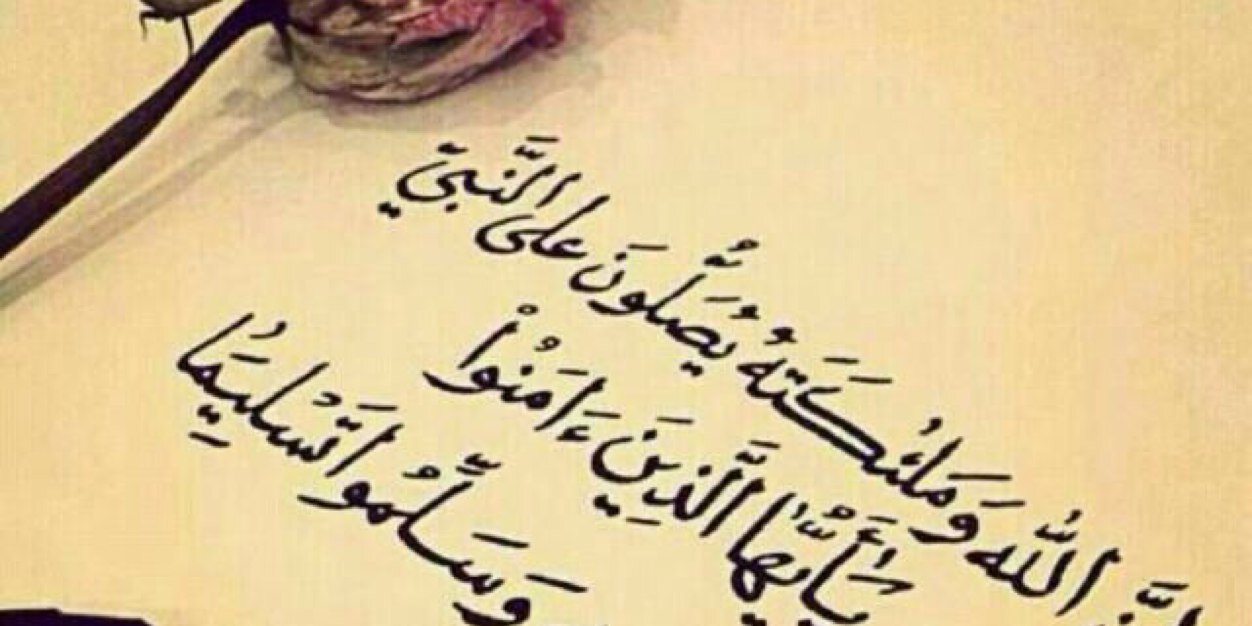 إنَّ اللَّهَ وَمَلَٰئِكَتَهُ يُصَلُّونَ عَلَى النَّبِيِّ
يَٰأَيُّهَا الَّذِينَ ءَامَنُوا
وَسَلِّمُوا تَسْلِيمًا